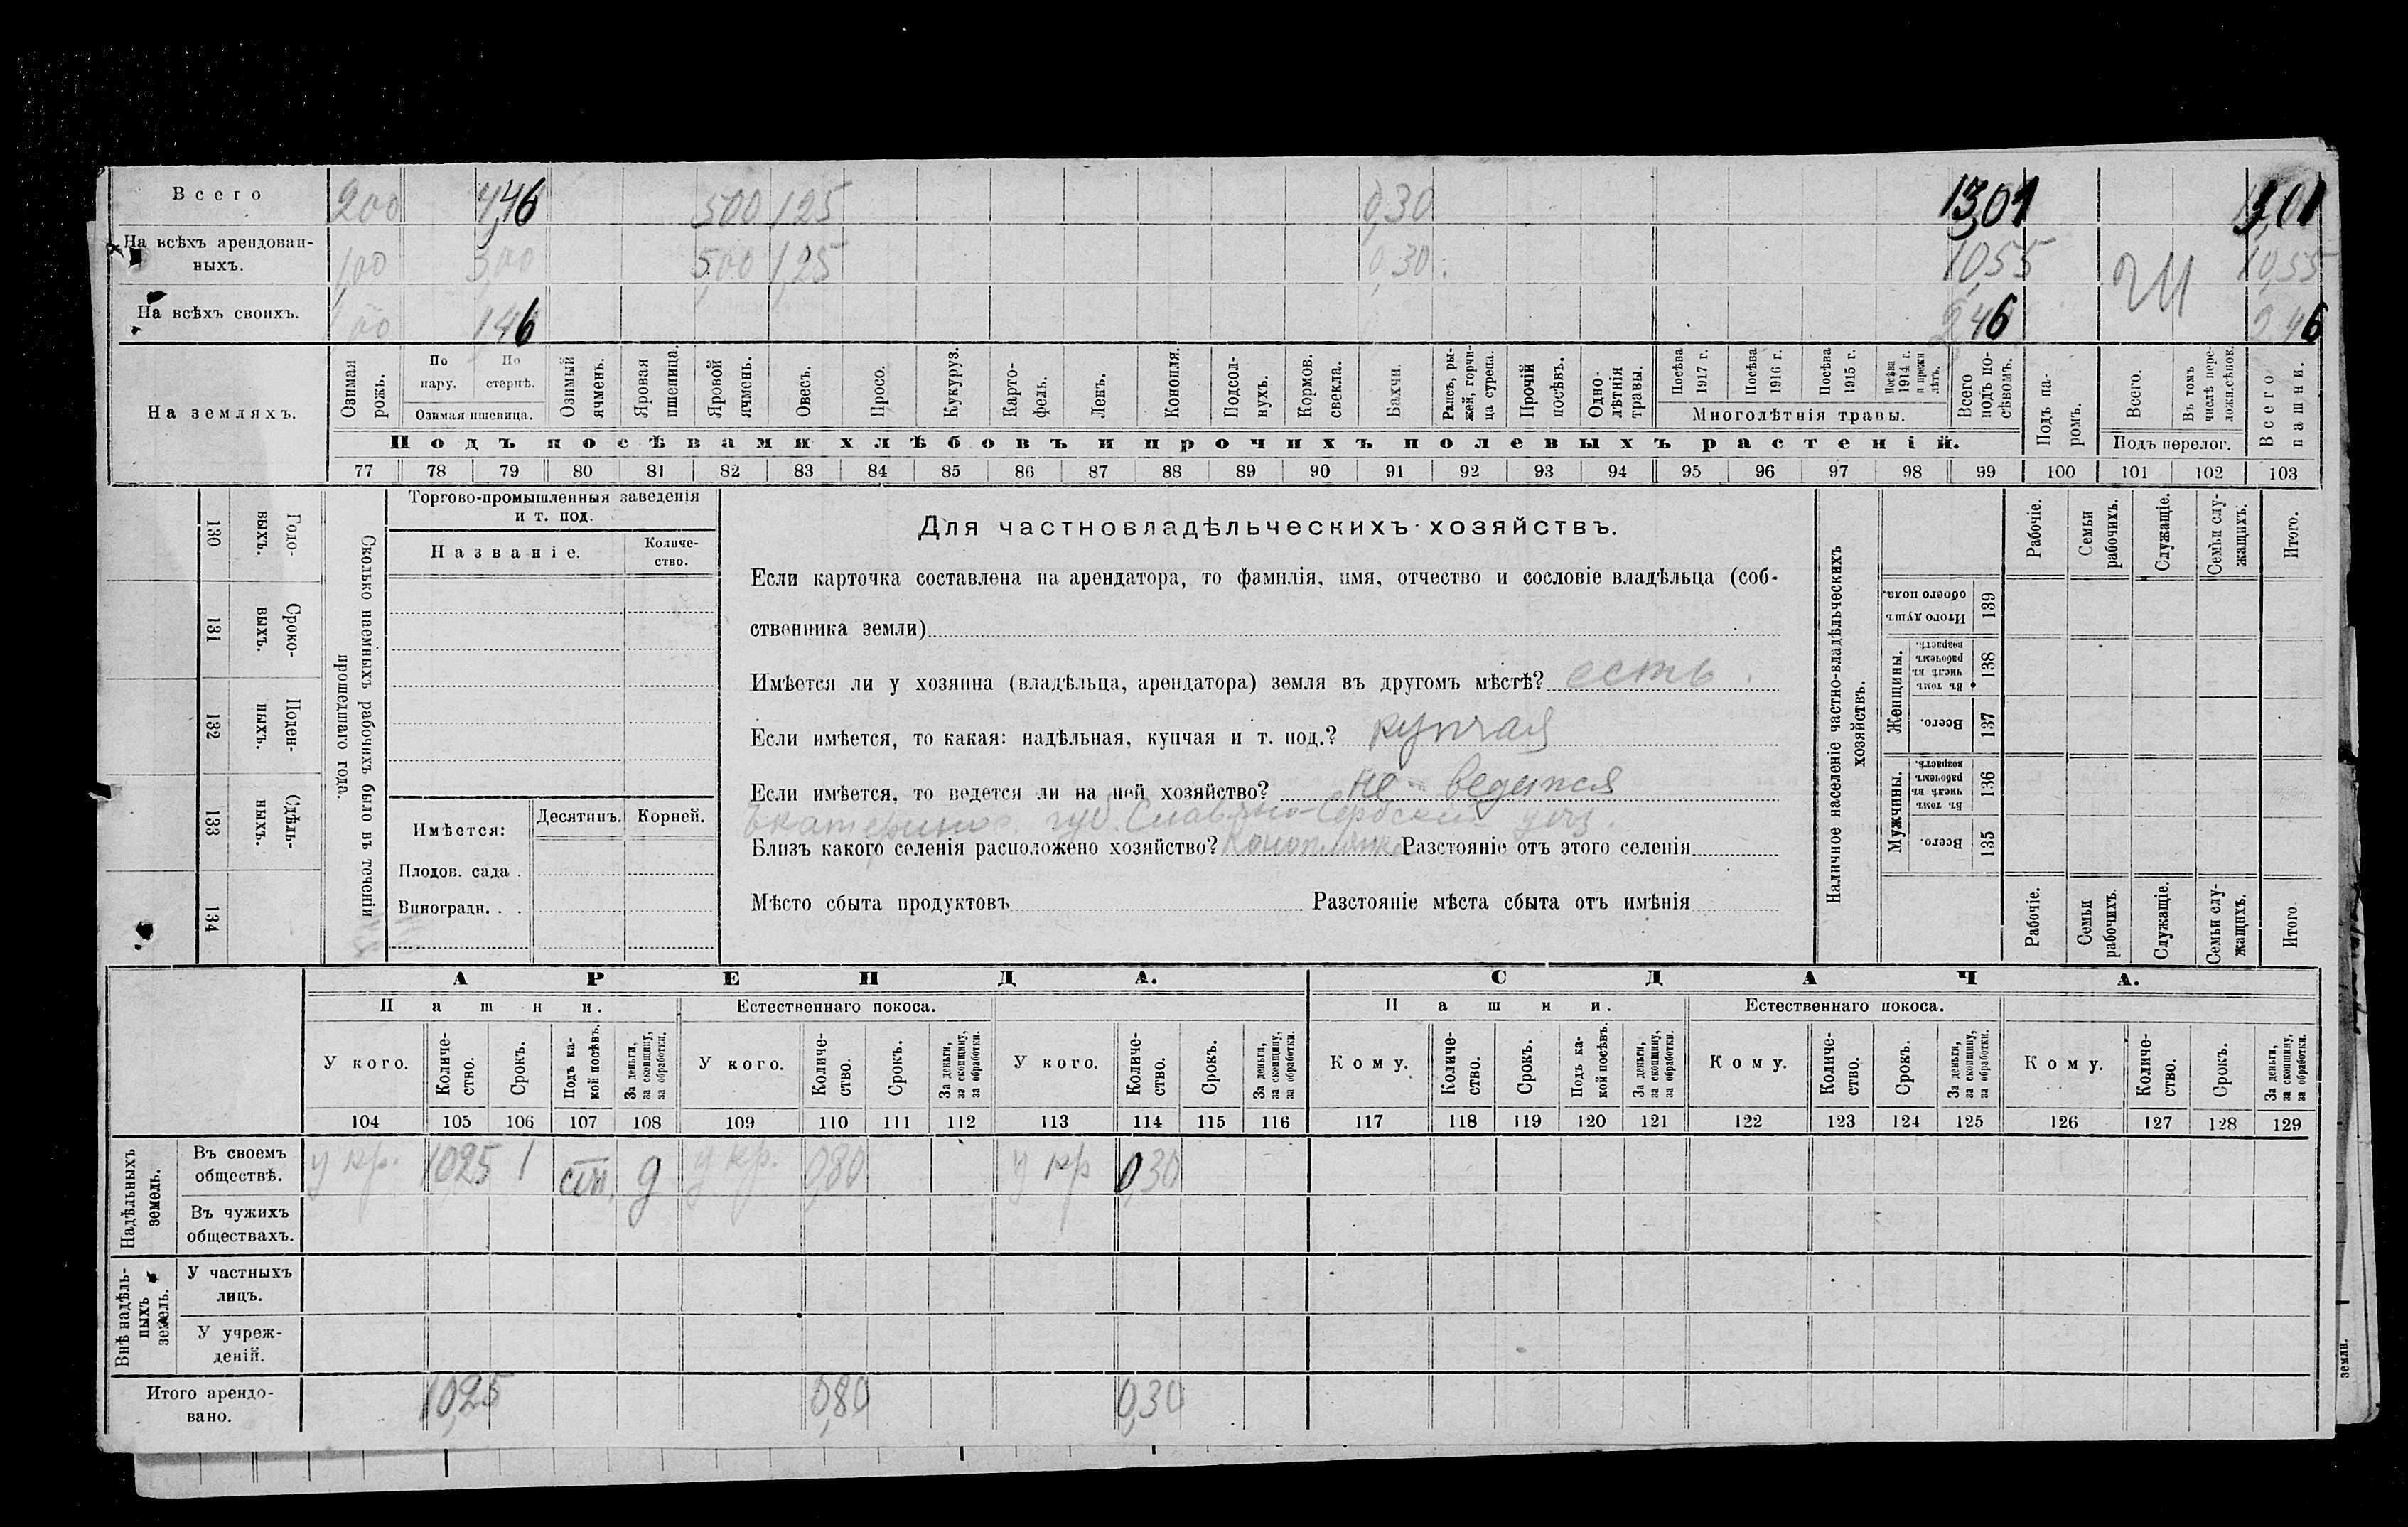 Всего 2,00 4,46 5,00 1,25 0,30 13,01 13,01
На всѣхъ арендован-
ныхъ. 1,00 3,00 5,00 1,25 0,30 10,55 10,55
На всѣхъ своихъ. 1,00 1,46 2,46 2,46
На земляхъ.
Озимая рожь.
По пару.
По стернѣ.
Озимая пшеница.
Озимый ячмень.
Яровая пшеница.
Яровой ячмень.
Овесъ.
Просо.
Кукуруз.
Карто-
фель.
Ленъ.
Конопля.
Подсол-
нухъ.
Кормов.
свекла.
Бахчи.
Рапсъ, ры-
жей, горчи-
ца сурепа.
Прочій
посѣвъ.
Одно-
лѣтнія
травы.
Посѣва
1917 г.
Посѣва
1916 г.
Посѣва
1915 г.
Посѣва
1914 г.
и прежн
лѣтъ.
Многолѣтнія травы.
Всего
подъ по-
сѣвомъ.
Подъ па-
ромъ.
Всего.
Въ томъ
числѣ пере-
ложн.сѣнок.
Подъ перелог.
Всего
пашни.
Подъ посѣвами хлѣбовъ и прочихъ полевыхъ растеній.
77 78 79 80 81 82 83 84 85 86 87 88 89 90 91 92 93 94 95 96 97 98 99 100 101 102 103
130 Годо-
выхъ.
131 Сроко-
выхъ.
132 Поден-
ныхъ.
133 Сдѣль-
ныхъ.
134
Сколько наемныхъ рабочихъ было въ теченіи
прошедшаго года.
Торгово-промышленныя заведенія
и т. под.
Названіе.
Количе-
ство.
Имѣется:
Десятинъ. Корней.
Плодов. сада .
Виноградн. . .
Для частновладѣльческихъ хозяйствъ.
Если карточка составлена на арендатора, то фамилія, имя, отчество и сословіе владѣльца (соб-
ственника земли)
Имѣется ли у хозяина (владѣльца, арендатора) земля въ другомъ мѣстѣ? есть.
Если имѣется, то какая: надѣльная, купчая и т. под.? купчая
Если имѣется, то ведется ли на ней хозяйство? не ведется
Екатеринос. губ. Славяно-Сербскій уѣз.
Близъ какого селенія расположено хозяйство? Коноплянка Разстояніе отъ этого селенія
Мѣсто сбыта продуктовъ Разстояніе мѣста сбыта отъ имѣнія
Наличное населеніе частно-владѣльческихъ
хозяйствъ.
Рабочіе.
Семьи
рабочихъ.
Служащіе.
Семьи слу-
жащихъ.
Итого.
Итого душъ
обоего пола.
139
Женщины.
Въ томъ
числѣ въ
рабочемъ
возрастѣ.
138
Всего.
137
Мужчины.
Въ томъ
числѣ въ
рабочемъ
возрастѣ.
136
Всего.
135
Рабочіе.
Семьи
рабочихъ.
Служащіе.
Семьи слу-
жащихъ.
Итого
АРЕНДА. СДАЧА.
Пашни. Естественнаго покоса. Пашни. Естественнаго покоса.
У кого.
Количе-
ство.
Срокъ.
Подъ ка-
кой посѣвъ.
За деньги,
за скопщину,
за обработки.
У кого.
Количе-
ство.
Срокъ.
За деньги,
за скопщину,
за обработки.
У кого.
Количе-
ство.
Срокъ.
За деньги,
за скопщину,
за обработки.
Кому.
Количе-
ство.
Срокъ.
Подъ ка-
кой посѣвъ.
За деньги,
за скопщину,
за обработки.
Кому.
Количе-
ство.
Срокъ.
За деньги,
за скопщину,
за обработки.
Кому.
Количе-
ство.
Срокъ.
За деньги,
за скопщину,
за обработки.
104 105 106 107 108 109 110 111 112 113 114 115 116 117 118 119 120 121 122 123 124 125 126 127 128 129
Надѣльныхъ
земель.
Въ своемъ
обществѣ. у кр. 10,25 1 д у кр. 0,80 у кр 0,30
Въ чужихъ
обществахъ.
Внѣ надѣль-
ныхъ
земель.
У частныхъ
лицъ.
У учреж-
деній.
Итого арендо-
вано. 10,25 0,80 0,30
земли.